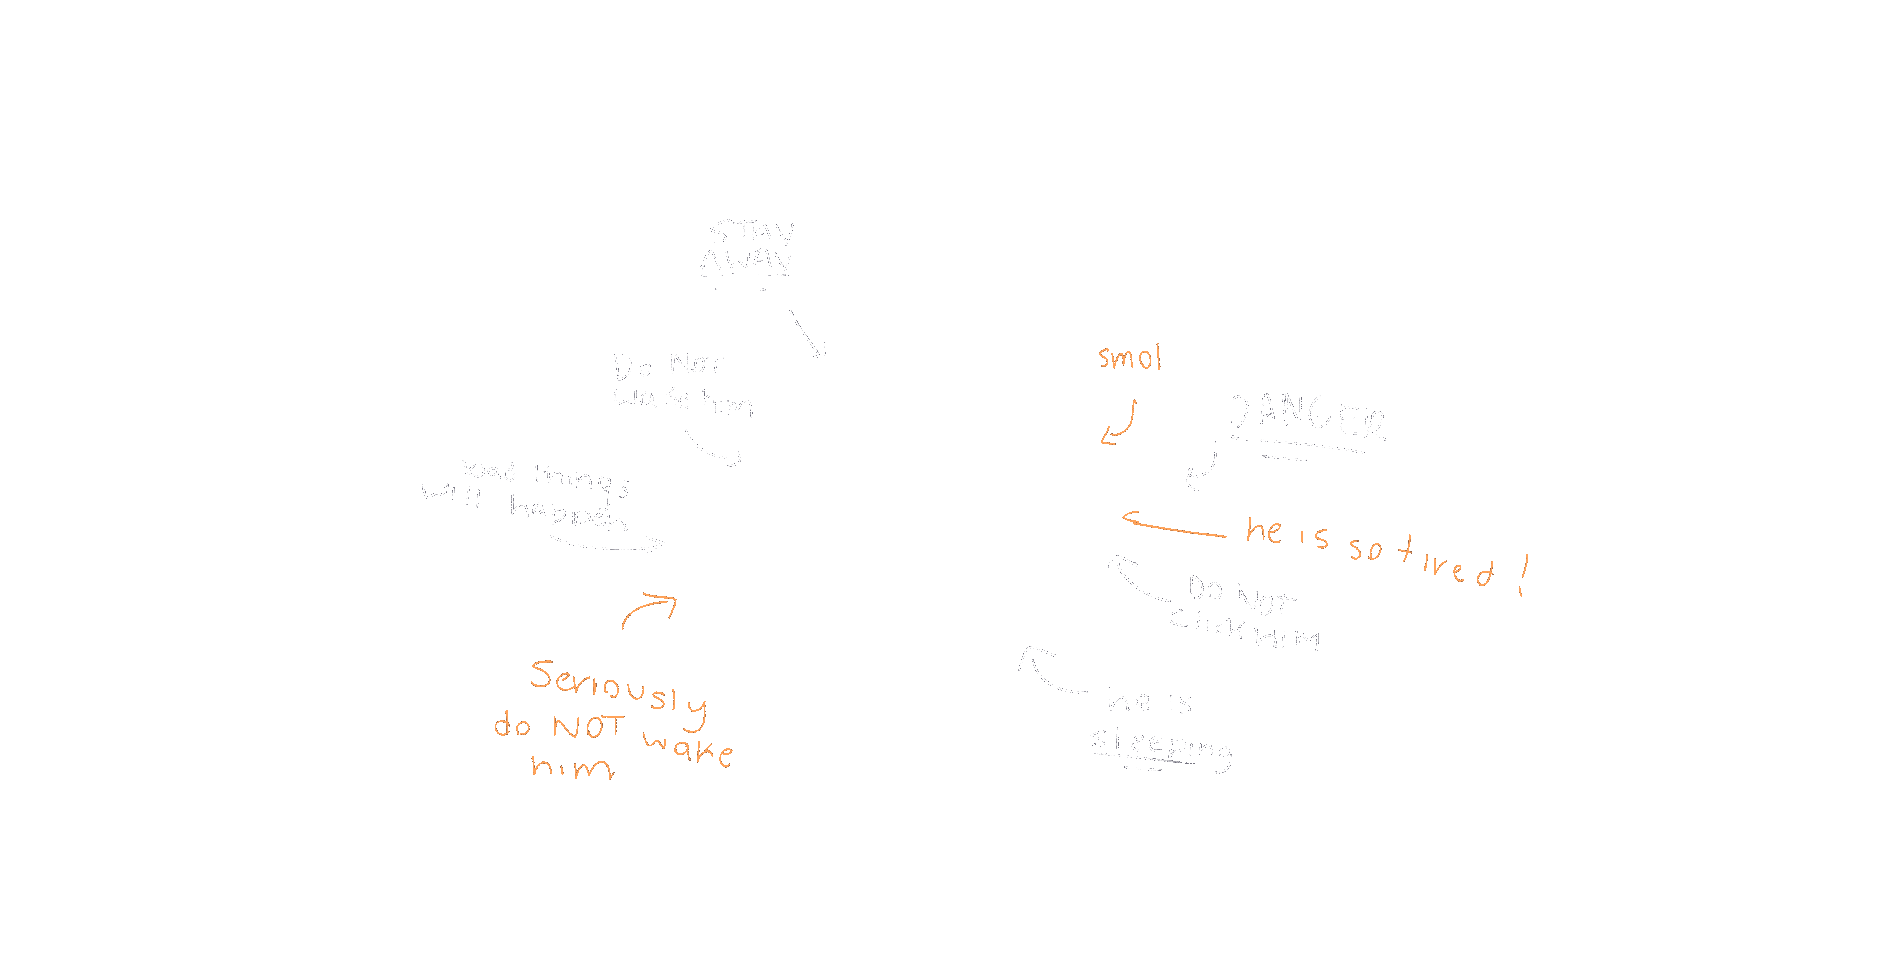 STAY
AWAY
Do NOT
wake him
bad things
will happen
Seriously
do NOT wake
him
smol
DANGER
he is so tired!
DO NOT
CLICK HIM
he is
sleeping